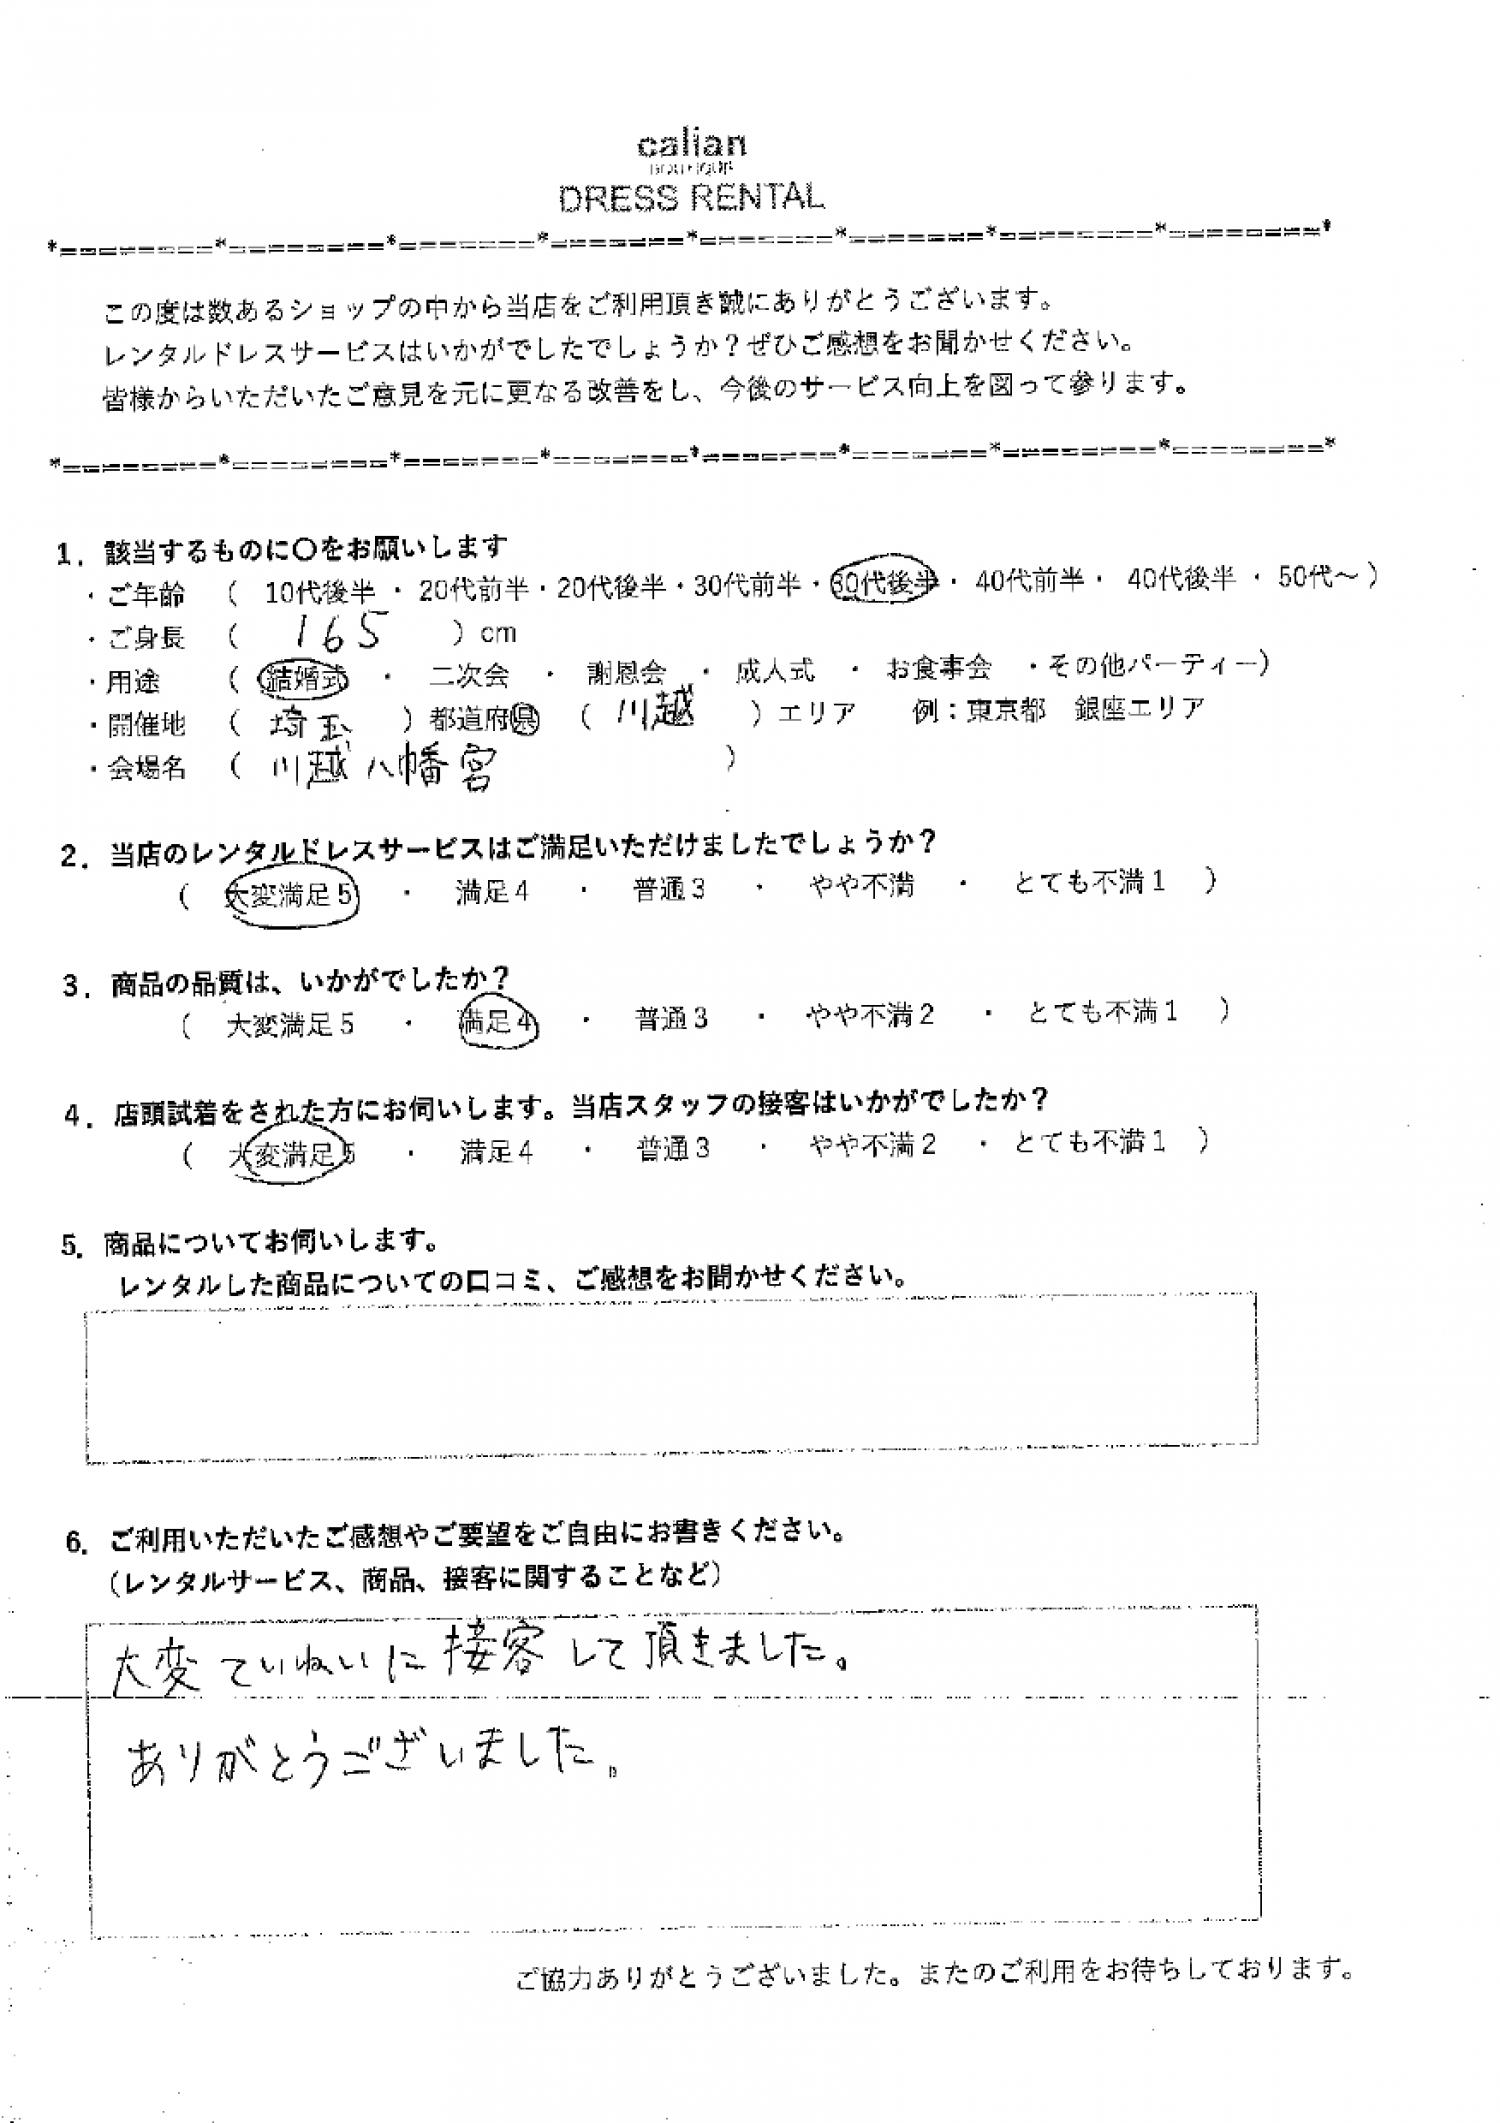 calian
BOUTIQUE
DRESS RENTAL
*========*========*=======*=======*=======*=======*========*========*
この度は数あるショップの中から当店をご利用頂き誠にありがとうございます。
レンタルドレスサービスはいかがでしたでしょうか？ぜひご感想をお聞かせください。
皆様からいただいたご意見を元に更なる改善をし、今後のサービス向上を図って参ります。
*========*========*=======*=======*=======*=======*========*========*
1．該当するものに〇をお願いします
・ご年齢 （ 10代後半 ・ 20代前半・20代後半・30代前半・30代後半・ 40代前半・ 40代後半 ・ 50代～ ）
・ご身長 （ 165 ）cm
・用途 （ 結婚式 ・ 二次会 ・ 謝恩会 ・ 成人式 ・ お食事会 ・その他パーティー）
・開催地 （ 埼玉 ）都道府県 （ 川越 ）エリア 例：東京都 銀座エリア
・会場名 （ 川越八幡宮 ）
2．当店のレンタルドレスサービスはご満足いただけましたでしょうか？
（ 大変満足５ ・ 満足４ ・ 普通３ ・ やや不満 ・ とても不満１ ）
3．商品の品質は、いかがでしたか？
（ 大変満足５ ・ 満足４ ・ 普通３ ・ やや不満２ ・ とても不満１ ）
4．店頭試着をされた方にお伺いします。当店スタッフの接客はいかがでしたか？
（ 大変満足５ ・ 満足４ ・ 普通３ ・ やや不満２ ・ とても不満１ ）
5．商品についてお伺いします。
レンタルした商品についての口コミ、ご感想をお聞かせください。
6．ご利用いただいたご感想やご要望をご自由にお書きください。
（レンタルサービス、商品、接客に関することなど）
大変ていねいに接客して頂きました。
ありがとうございました。
ご協力ありがとうございました。またのご利用をお待ちしております。